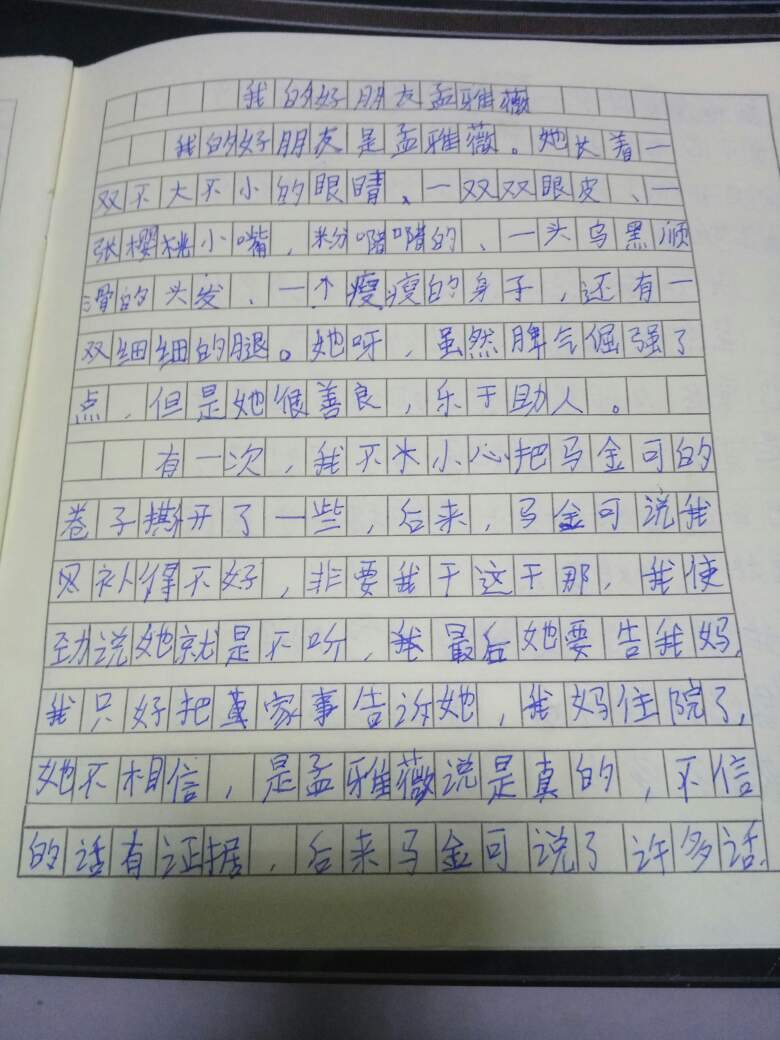 我的好朋友孟雅薇
我的好朋友是孟雅薇。她长着一
双不大不小的眼睛、一双双眼皮、一
张樱桃小嘴，粉嘟嘟的、一头乌黑顺
滑的头发、一个瘦瘦的身子，还有一
双细细的腿。她呀，虽然脾气倔强了
点，但是她很善良，乐于助人。
有一次，我不小心把马金可的
卷子撕开了一些，后来，马金可说我
补得不好，非要我干这干那，我使
劲说她就是不听，我最后她要告我妈，
我只好把家事告诉她，我妈住院了，
她不相信，是孟雅薇说是真的，不信
的话有证据，后来马金可说了许多话，